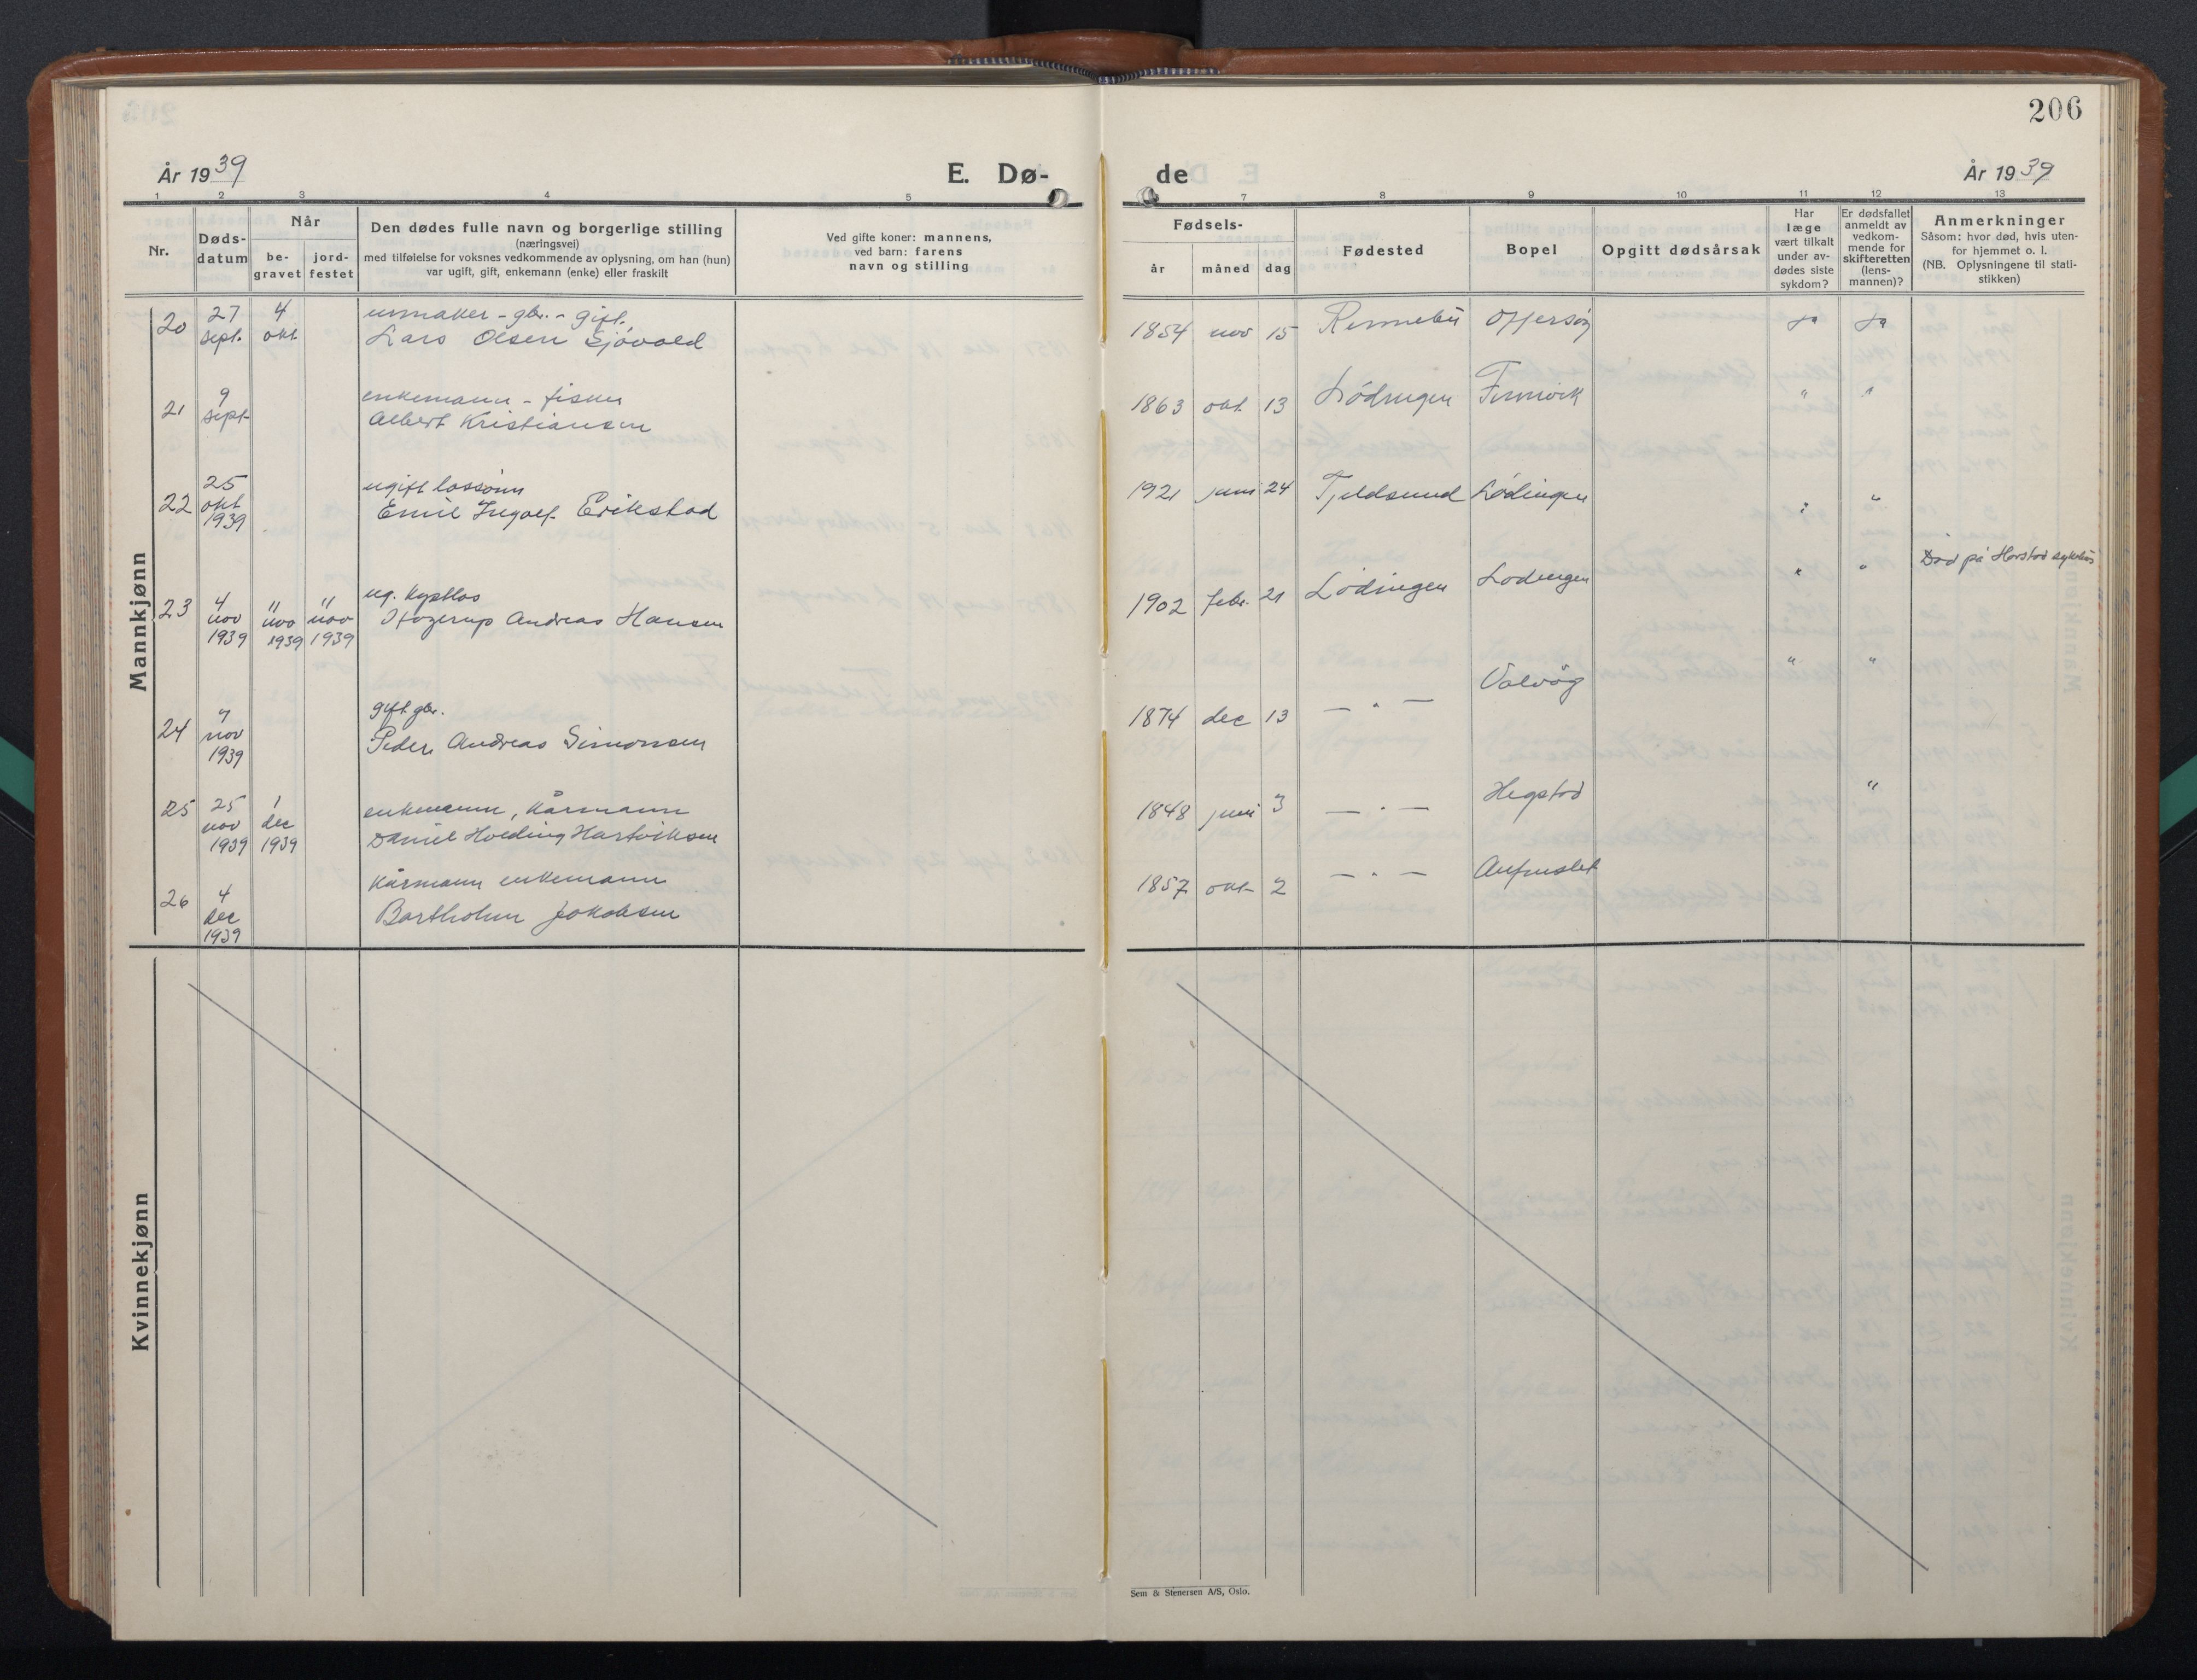 206
År 1939
E. Dø-
de
År 1939
1 2 3 4 5
7 8 9 10 11 12 13
Nr.
Døds-
datum
Når
be-
gravet
jord-
festet
Den dødes fulle navn og borgerlige stilling
(næringsvei)
med tilføielse for voksnes vedkommende av oplysning, om han (hun)
var ugift, gift, enkemann (enke) eller fraskilt
Ved gifte koner: mannens,
ved barn: farens
navn og stilling
Fødsels-
år måned dag
Fødested
Bopel
Opgitt dødsårsak
Har
læge
vært tilkalt
under av-
dødes siste
sykdom?
Er dødsfallet
anmeldt av
vedkom-
mende for
skifteretten
(lens-
mannen)?
Anmerkninger
Såsom: hvor død, hvis uten-
for hjemmet o. l.
(NB. Oplysningene til stati-
stikken)
Mannkjønn
20 27 sept. 4 okt.
urmaker - gbr. - gift.
Lars Olsen Sjøvold
1854 nov 15 Rennebu Offersøy Ja Ja
21 9 sept
enkemann - fisker
Albert Kristiansen
1863 okt. 13 Lødingen Finnvik " "
22 25 okt 1939
ugift
Emil Ingolf Erikstad
1921 juni 24 Tjeldsund Lødingen " "
23 4 nov 1939 11 nov 1939 11 nov 1939
ug.
Hagerup Andreas Hansen
1902 febr. 21 Lødingen Lødingen " " Død på Harstad sykehus
24 7 nov 1939
gift gbr.
Peder Andreas Simonsen
1874 dec 13 — " — Valvåg " "
25 25 nov 1939 1 dec 1939
enkemann, kårmann
Daniel Holding Hartviksen
1848 juni 3 — " — Hegstad "
26 4 dec 1939
kårmann enkemann
Bartholm Jakobsen
1857 okt 2 — " —
Kvinnekjønn
Sem & Stenersen A/S, Oslo.